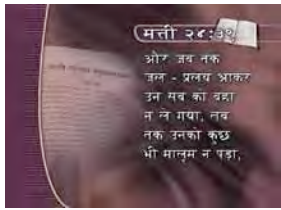 मत्ती २४:३९
और जब तक
जल - प्रलय आकर
उन सब को बहा
न ले गया, तब
तक उनको कुछ
भी मालूम न पड़ा,